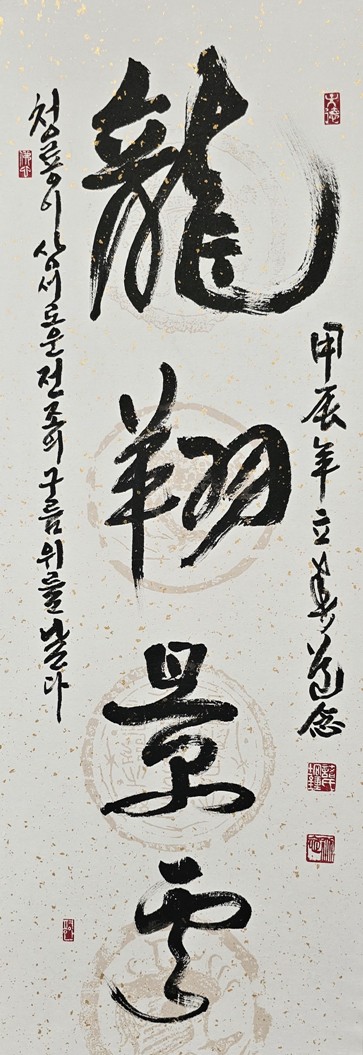 甲辰年立春
龍翔景雲
청룡이 상서로운 전조의 구름 위를 날다